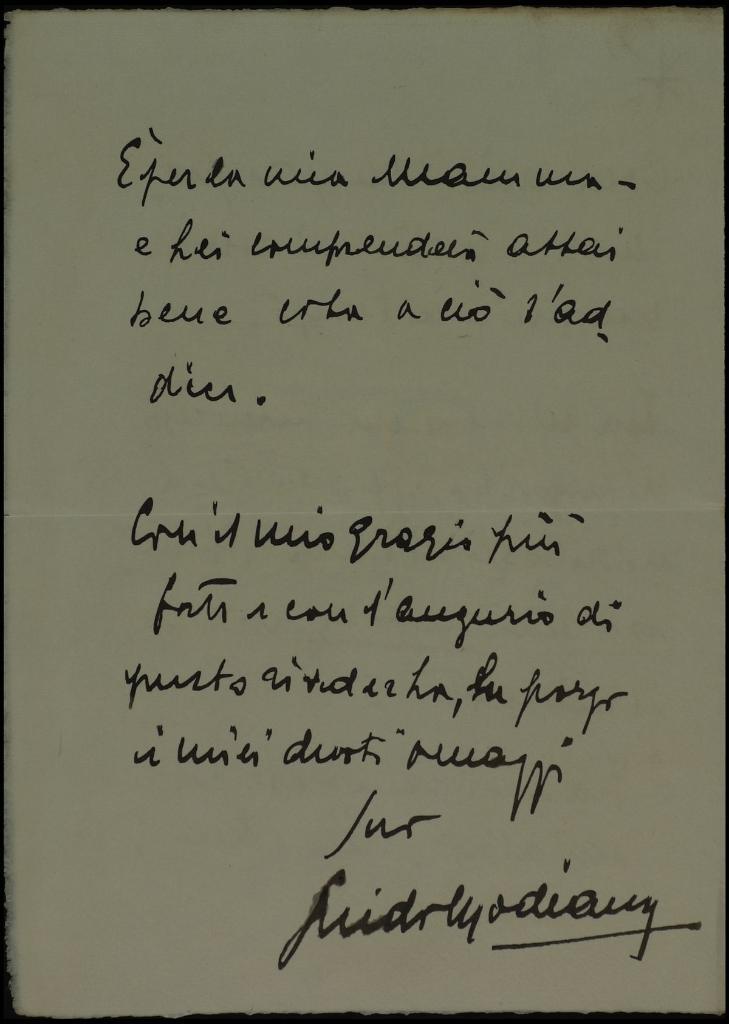 È per la mia Mamma -
e Lei comprenderà assai
bene cosa a ciò s'ad
dica.
Con il mio grazie più
forte e con l'augurio di
presto rivederLa, Le porgo
i miei devoti omaggi
Suo
Guido Modiano